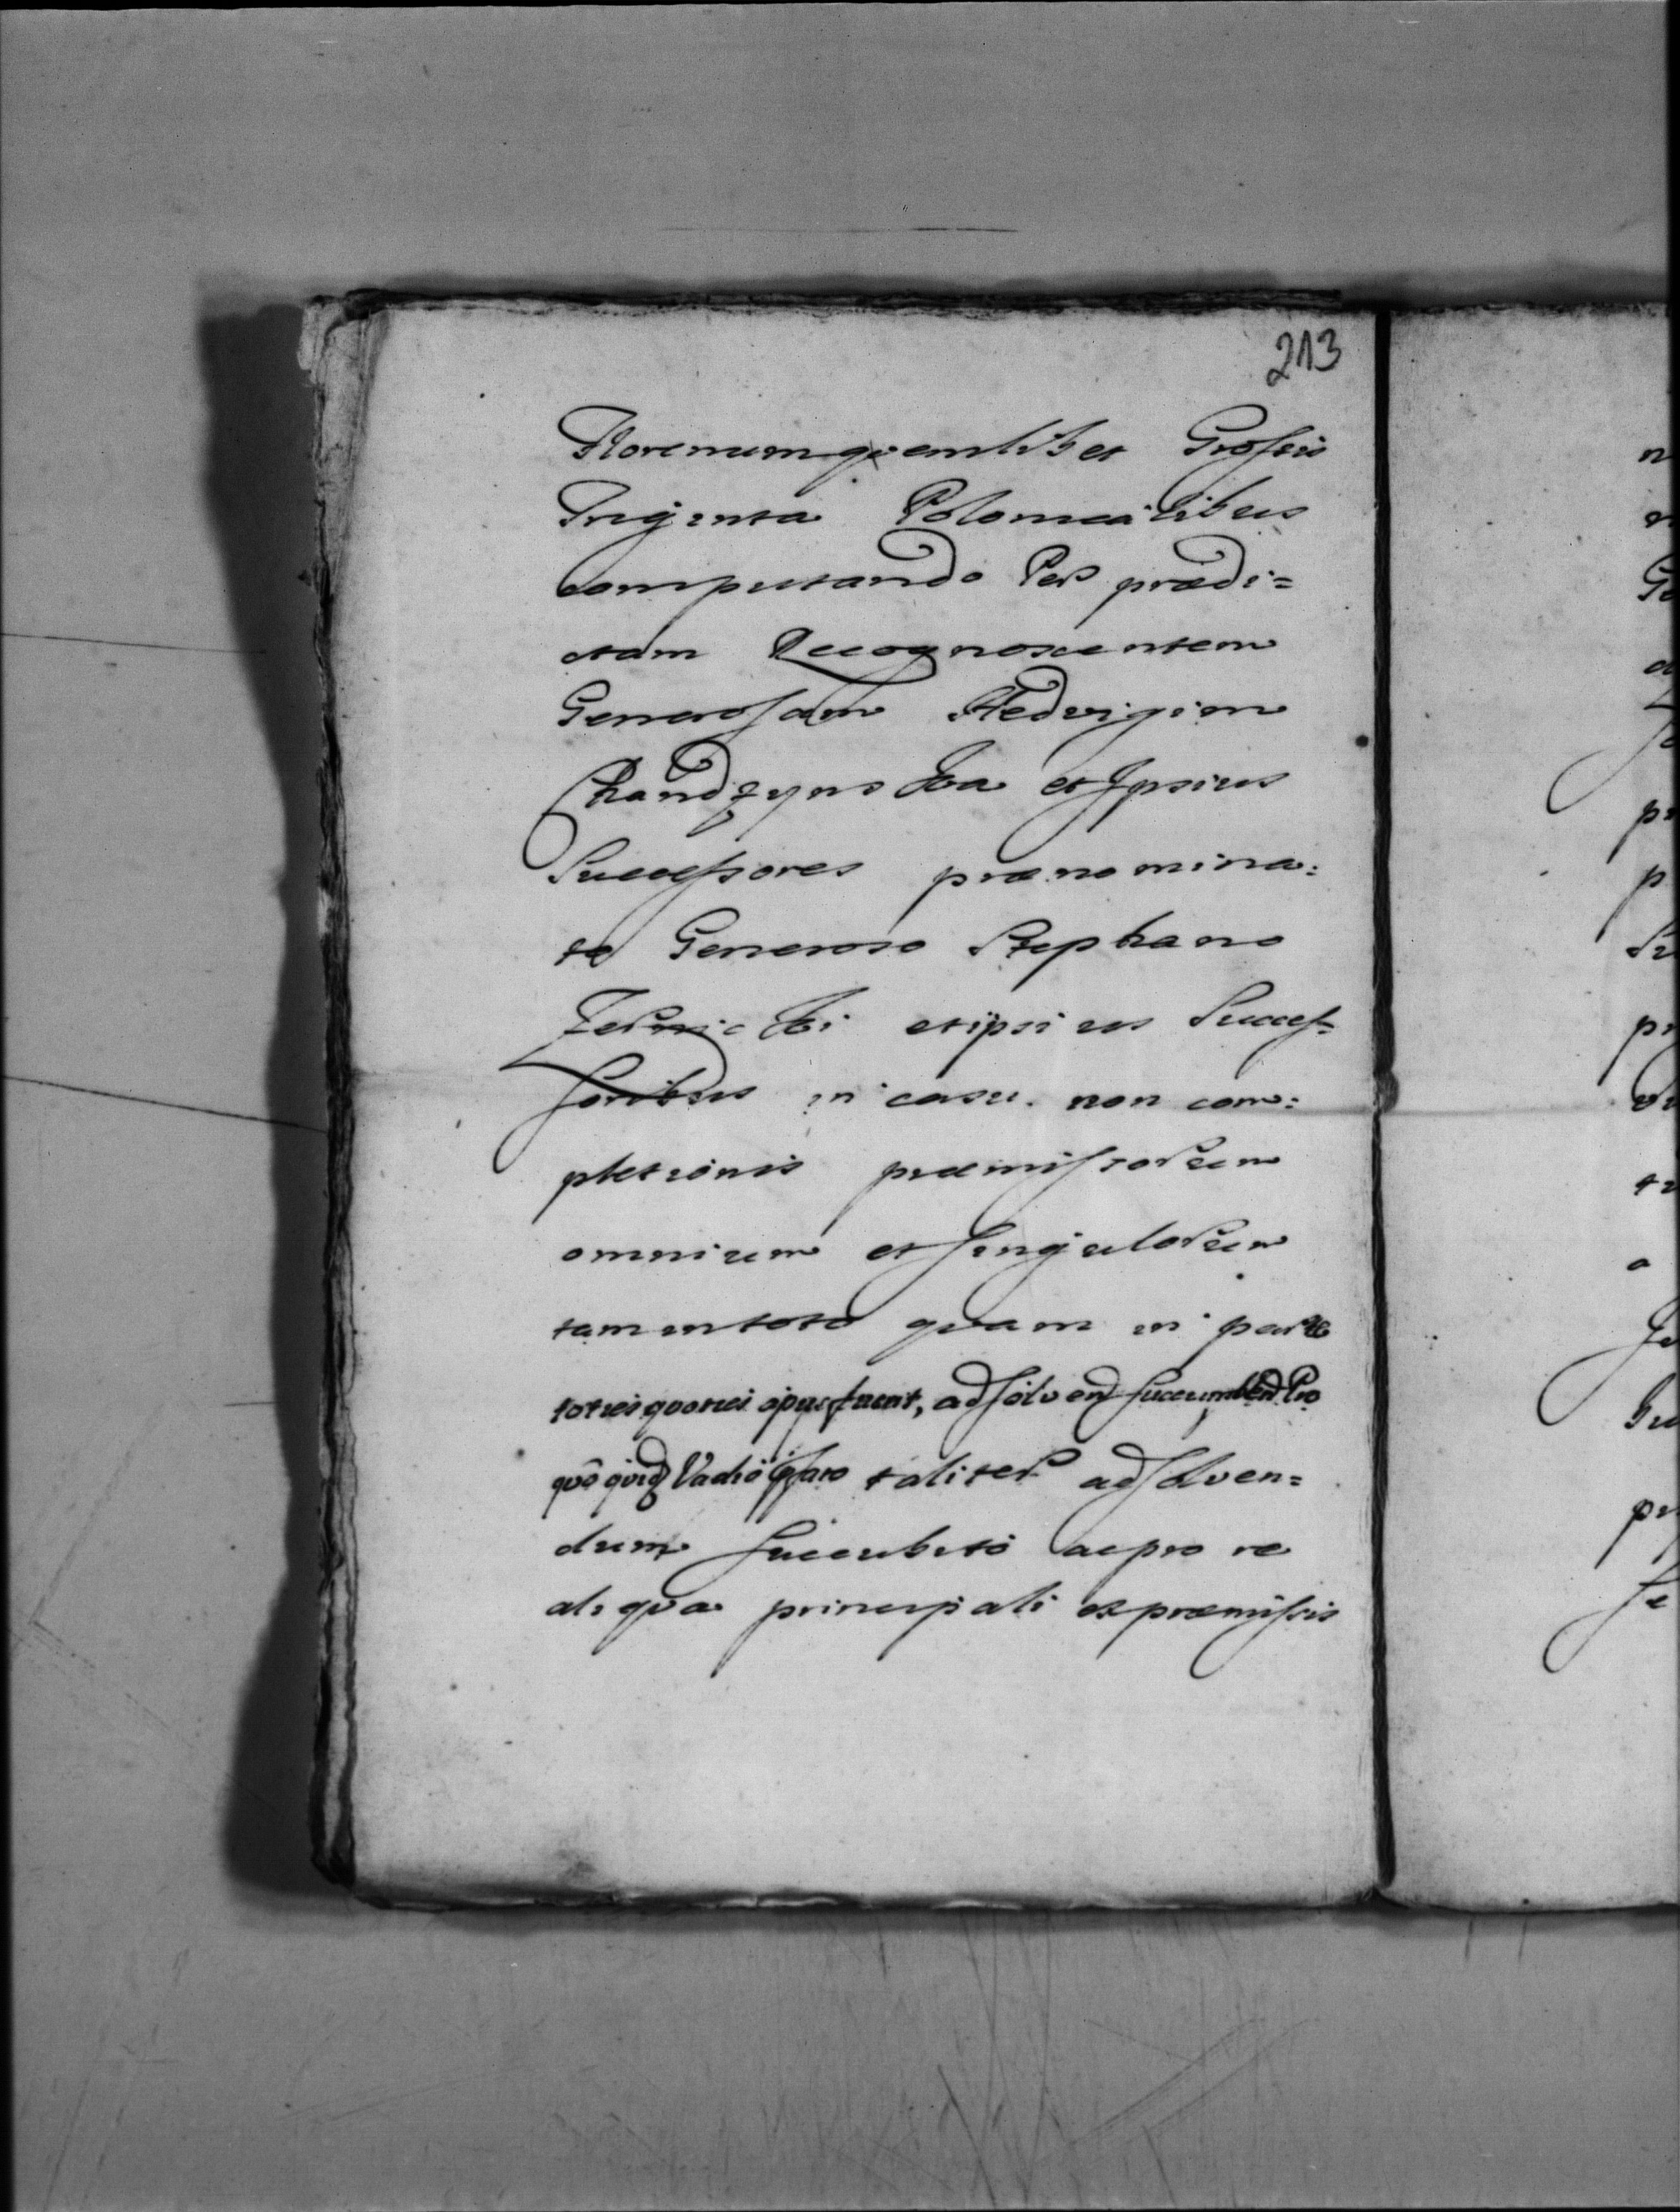 213
Florenum quemlibet Grossis
Trigenta Polonicalibus
computando Per prædi=
ctam Recognoscentem
Generosam Hedvigim
Chandzynska et Ipsius
Successores prænomina:
to Generoso Stephano
et ipsius Succes=
soribus in casu non com:
pletionis præmissorum
omnium et singulorum
tam in toto quam in parte
toties quoties opus fuerit, adsolvend succumbend Pro
quô quid Vadio ipso taliter adsolven=
dum succubito ac pro re
aliqua principali ex præmissis